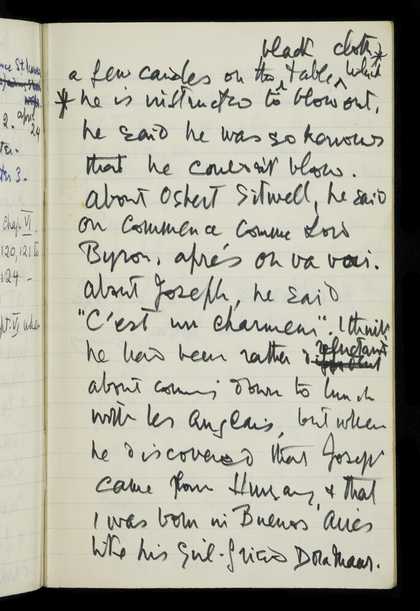 black cloth *
a few candles on the table, which
* he is instructed to blow out,
he said he was so nervous
that he couldn't blow.
About Osbert Sitwell, he said
on commence comme Lord
Byron, après on va voir.
About Joseph, he said
"C'est un charmeur". I think
he had been rather reluctant
about coming down to lunch
with les anglais, but when
he discovered that Joseph
came from Hungary, & that
I was born in Buenos Aires
like his girl-friend Dora Maar.
2.
24
3.
Chap VI.
120, 121 to
124 -
VI when